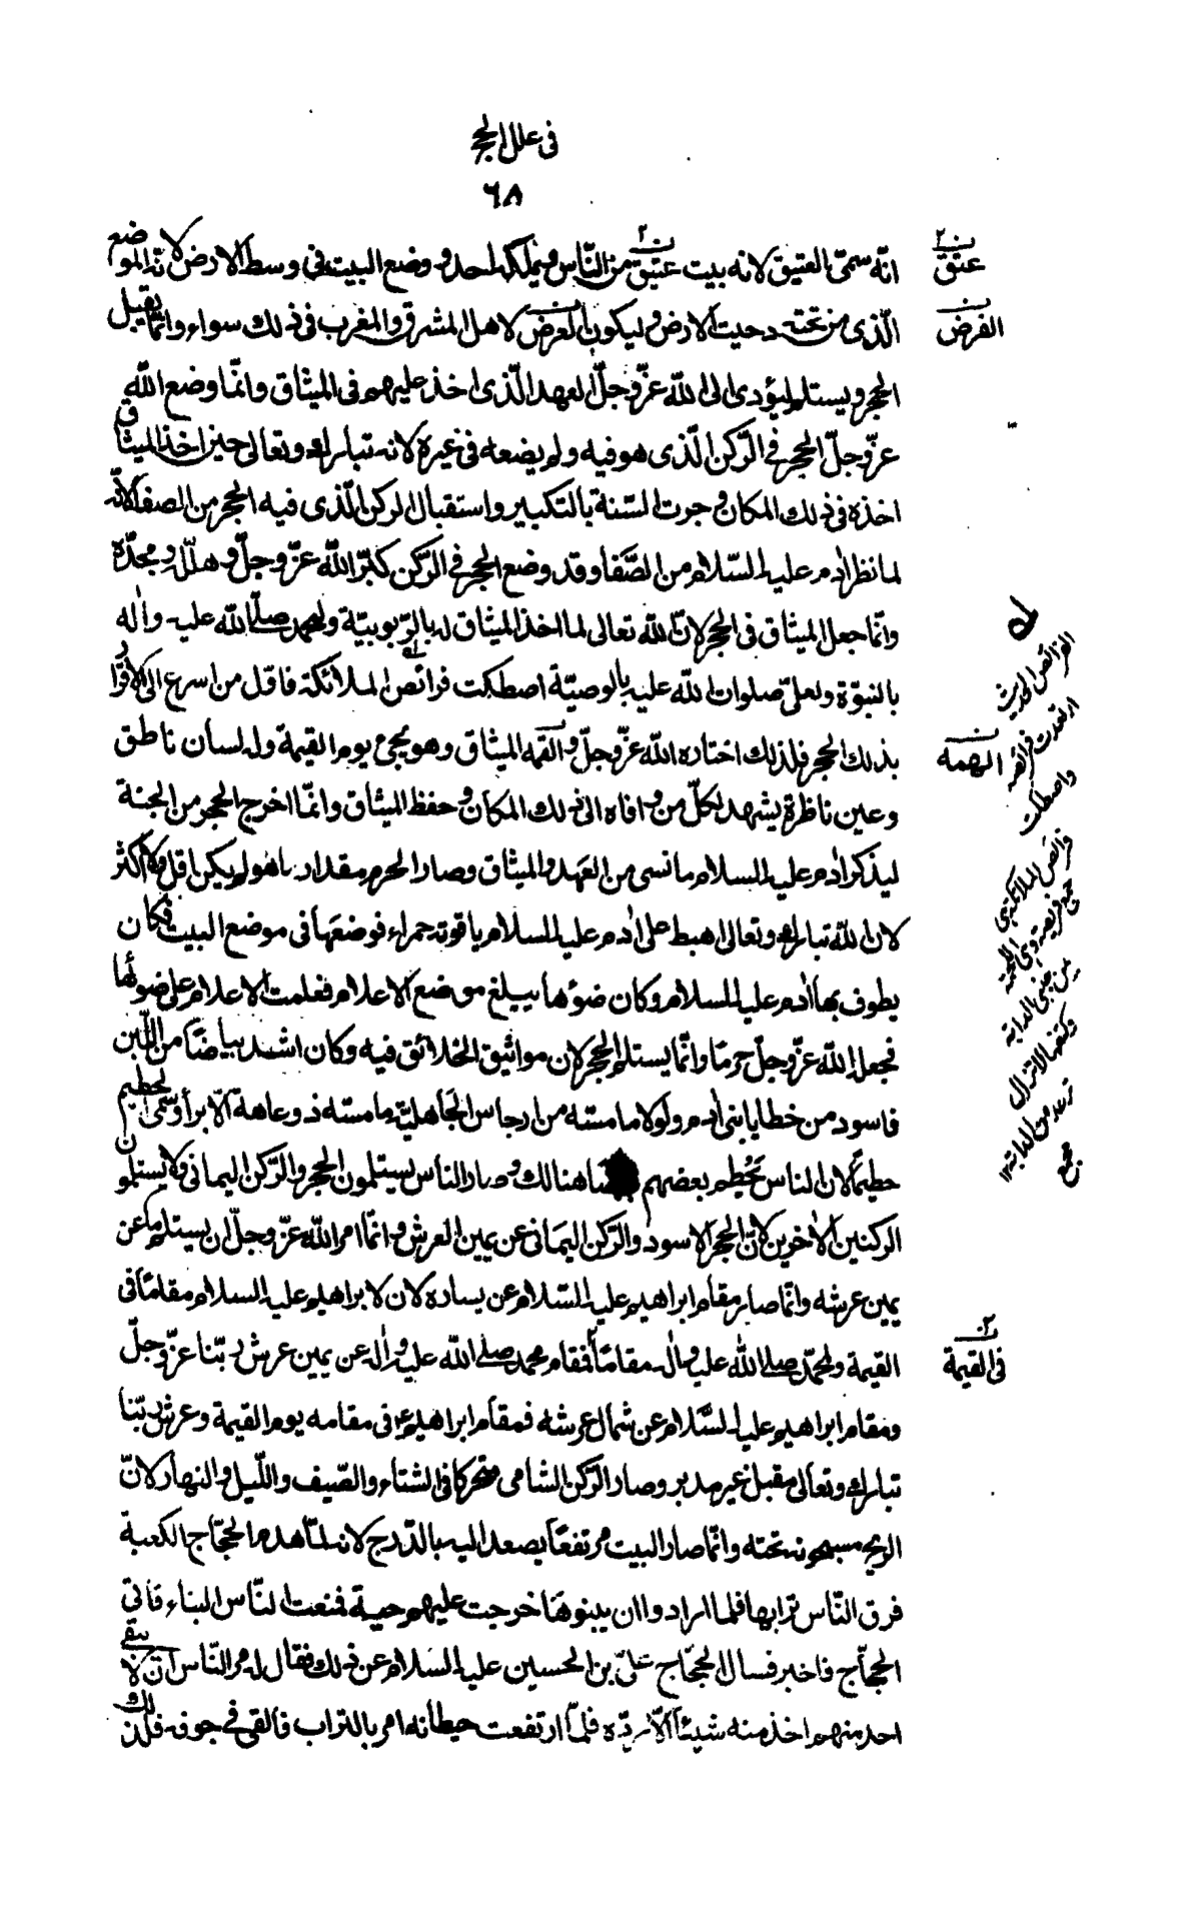 في علل الحجر
٦٨
انّه سمّى العتيق لانه بيت عتيق من النّاس ولم يملكه احد ووضع البيت في وسط الارض لانّه الموضع
الّذى من تحته دحيت الارض وليكون الغرض لاهل المشرق والمغرب في ذلك سواء وانّما يقبل
الحجر ويستلم ليؤدى الى اللّه عزّ وجلّ العهد الّذى اخذ عليهم في الميثاق وانّما وضع اللّه
عزّ وجلّ الحجر في الرّكن الّذى هو فيه ولم يضعه في غيره لانه تبارك وتعالى حين اخذ الميثاق
اخذه في ذلك المكان وجرت السّنة بالتكبير واستقبال الركن الّذى فيه الحجر من الصفا لانّه
لما نظر ادم عليه السّلام من الصَّفا وقد وضع الحجر في الرّكن كبّر اللّه عزّ وجلّ وهلّله ومجّده
وانّما جعل الميثاق في الحجر لانّ اللّه تعالى لما اخذ الميثاق له بالرّبوبيّة ولمحمد صلّى اللّه عليه واله
بالنبوّة ولعلىّ صلوات اللّه عليه بالوصيّة اصطكت فرائص الملائكة فاوّل من اسرع الى الاقرار
بذلك الحجر فلذلك اختاره اللّه عزّ وجلّ والقمه الميثاق وهو يجيء يوم القيمة وله لسان ناطق
وعين ناظرة يشهد لكلّ من وافاه الى ذلك المكان وحفظ الميثاق وانّما اخرج الحجر من الجنة
ليذكر ادم عليه السلام ما نسى من العهد والميثاق وصار الحرم مقدار ما هو لم يكن اقل ولا اكثر
لان اللّه تبارك وتعالى اهبط على ادم عليه السلام ياقوتة حمراء فوضعها في موضع البيت فكان
يطوف بها ادم عليه السلام وكان ضوءها يبلغ موضع الاعلام فعلمت الاعلام على ضوئها
فجعل اللّه عزّ وجلّ حرمًا وانّما يستلم الحجر لان مواثيق الخلائق فيه وكان اشد بياضًا من اللّبن
فاسود من خطايا بنى ادم ولولا ما مسته من ارجاس الجاهليّة ما مسّه ذو عاهة الّا برأ وسمّى الحطيم
حطيمًا لان الناس يحطم بعضهم هنالك وصار الناس يستلمون الحجر والرّكن اليمانى ولا يستلمون
الركنين الاخرين لانّ الحجر الاسود والرّكن اليمانى عن يمين العرش وانّما امر اللّه عزّ وجلّ ان يستلم ما عن
يمين عرشه وانّما صار مقام ابراهيم عليه السّلام عن يساره لان لابراهيم عليه السلام مقامًا في
القيمة ولمحمّد صلى اللّه عليه واله مقامًا فمقام محمد صلى اللّه عليه واله عن يمين عرش ربّنا عزّ وجلّ
ومقام ابراهيم عليه السّلام عن شمال عرشه فمقام ابراهيم ع في مقامه يوم القيمة وعرش ربّنا
تبارك وتعالى مقبل غير مدبر وصار الرّكن الشامى متحركا في الشتاء والصّيف واللّيل والنهار لانّ
الريح مسجونة تحته وانّما صار البيت مرتفعًا يصعد اليه بالدّرج لانه لمّا هدم الحجّاج الكعبة
فرق النّاس ترابها فلما ارادوا ان يبنوها خرجت عليهم حية فمنعت النّاس البناء فاتى
الحجّاج فاخبر فسال الحجّاج علىّ بن الحسين عليه السّلام عن ذلك فقال له مر النّاس ان لا يبقى
احد منهم اخذ منه شيئًا الّا ردّه فلمّا ارتفعت حيطانه امر بالتراب فالقى في جوفه فلذلك
عتق
الفرض
الفرائص
الحديث
ارتعدت فرائصه
واصطكت
فرائص الملائكة
الهمه
في القيمة